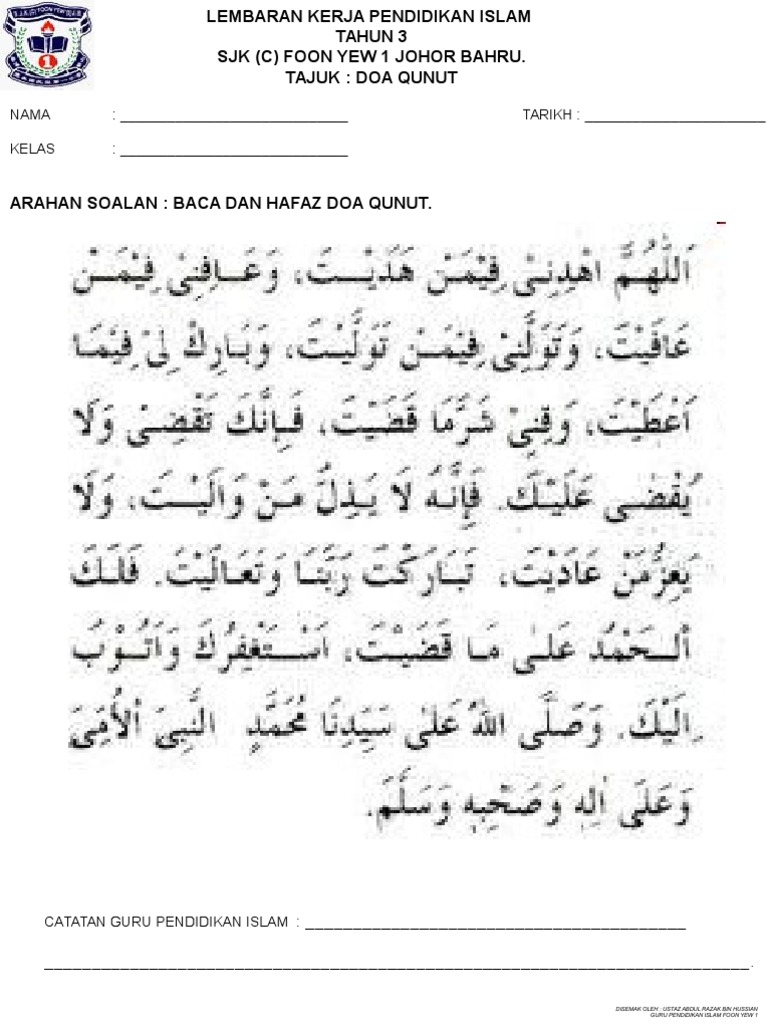 S.J.K (C) FOON YEW
1
LEMBARAN KERJA PENDIDIKAN ISLAM
TAHUN 3
SJK (C) FOON YEW 1 JOHOR BAHRU.
TAJUK : DOA QUNUT
NAMA : ____________________________ TARIKH : ______________________
KELAS : ____________________________
ARAHAN SOALAN : BACA DAN HAFAZ DOA QUNUT.
اَللّٰهُمَّ اهْدِنِيْ فِيْمَنْ هَدَيْتَ، وَعَافِنِيْ فِيْمَنْ
عَافَيْتَ، وَتَوَلَّنِيْ فِيْمَنْ تَوَلَّيْتَ، وَبَارِكْ لِيْ فِيْمَا
اَعْطَيْتَ، وَقِنِيْ شَرَّمَا قَضَيْتَ، فَإِنَّكَ تَقْضِيْ وَلَا
يُقْضٰى عَلَيْكَ. فَإِنَّهُ لَا يَذِلُّ مَنْ وَالَيْتَ، وَلَا
يَعِزُّمَنْ عَادَيْتَ، تَبَارَكْتَ رَبَّنَا وَتَعَالَيْتَ. فَلَكَ
اَلْحَمْدُ عَلٰى مَا قَضَيْتَ، اَسْتَغْفِرُكَ وَاَتُوْبُ
اِلَيْكَ. وَصَلَّى اللّٰهُ عَلٰى سَيِّدِنَا مُحَمَّدٍ النَّبِيِّ اْلأُمِّيِّ
وَعَلٰى اٰلِهِ وَصَحْبِهِ وَسَلَّمَ.
CATATAN GURU PENDIDIKAN ISLAM : ________________________________________
__________________________________________________________________________.
DISEMAK OLEH : USTAZ ABDUL RAZAK BIN HUSSIAN
GURU PENDIDIKAN ISLAM FOON YEW 1